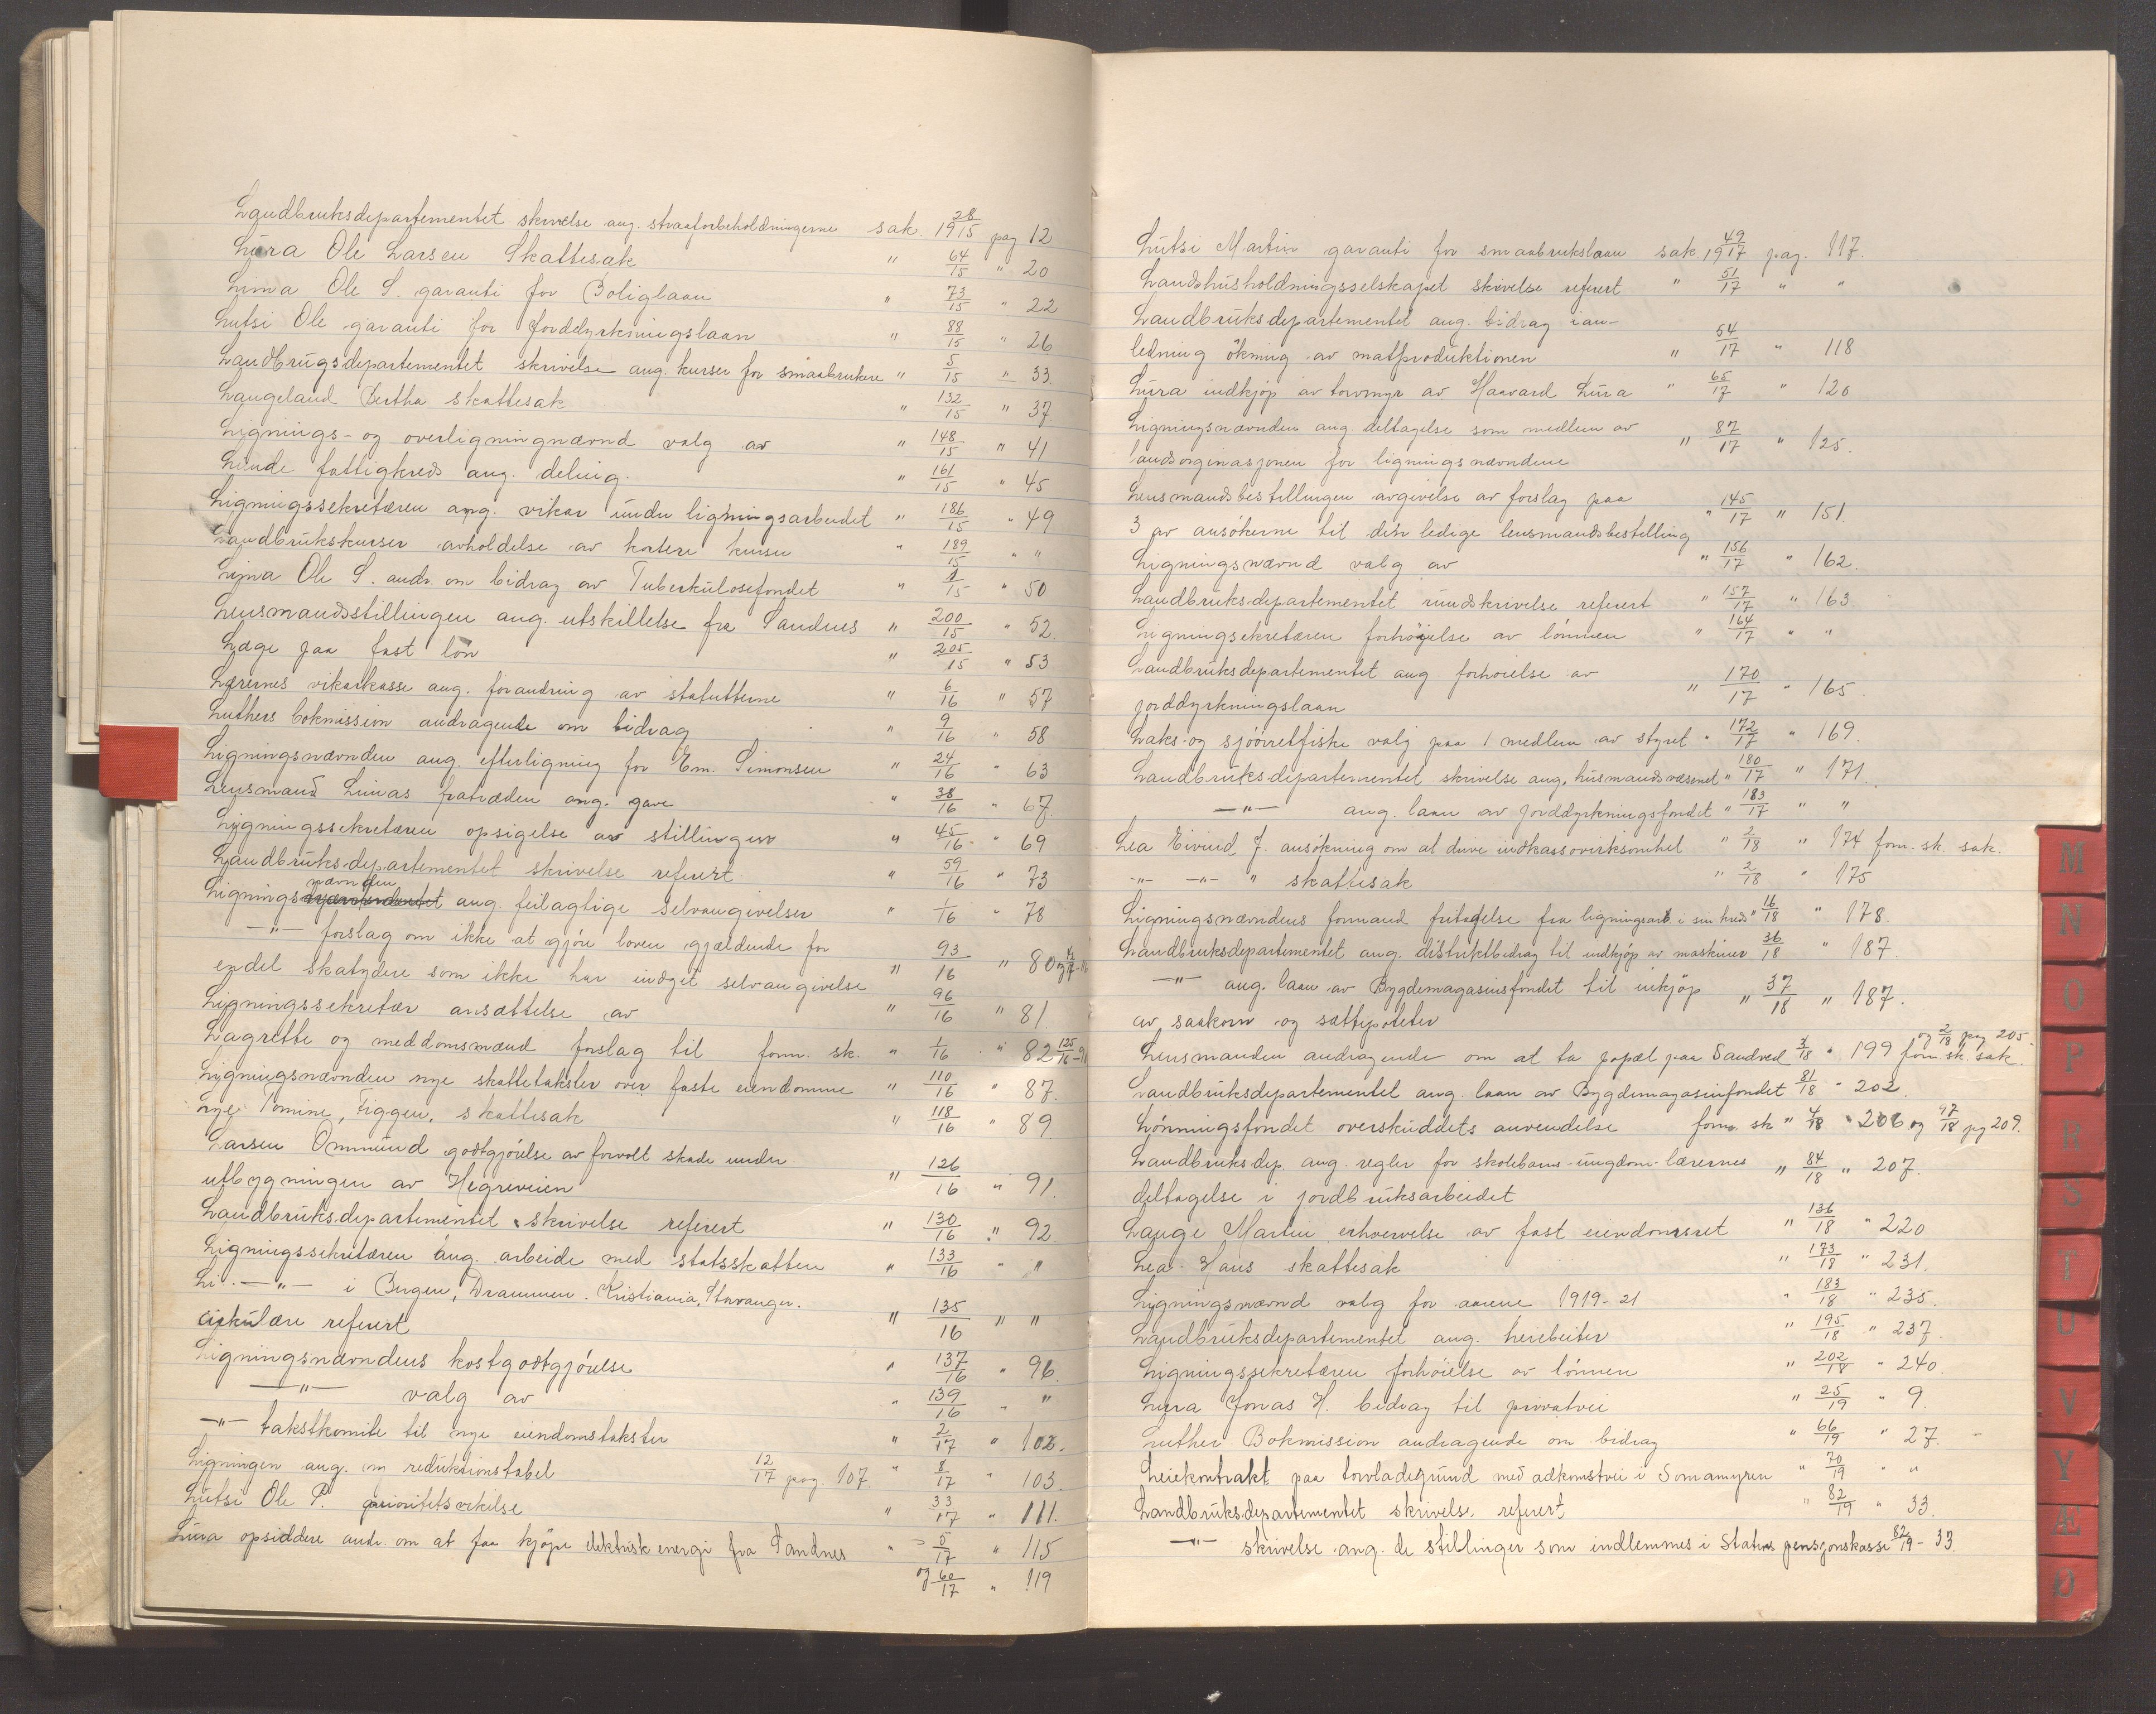 Landbruksdepartementet skrivelse ang. straaforbeholdningerne sak 28/1915 pag 12
Lura Ole Larsen Skattesak " 64/15 " 20
Lima Ole S. garanti for Boliglaan " 73/15 " 22
Lutsi Ole garanti for Jorddyrkningslaan " 88/15 " 26
Landbrugsdepartementet skrivelse ang. kurser for smaabrukere " 5/15 " 33
Langeland Bertha skattesak " 132/15 " 37
Lignings- og overligningnævnd valg av " 148/15 " 41
Lende fattigkreds ang. deling. " 161/15 " 45
Ligningssekretæren ang. vikar under ligningsarbeidet " 186/15 " 49
Landbrukskurser avholdelse av kortere kurser " 189/15 " "
Lima Ole S. andr. om bidrag av Tuberkulosefondet " 8/15 " 50
Lensmandsstillingen ang. utskillelse fra Sandnes " 200/15 " 52
Læge paa fast løn " 205/15 " 53
Lærernes vikarkasse ang. forandring av statutterne " 6/16 " 57
Luthers bokmission andragende om bidrag " 9/16 " 58
Ligningsnævnden ang. efterligning for Em. Simonsen " 24/16 " 63
Lensmand Limas fratræden ang. gave " 38/16 " 67
Ligningssekretæren opsigelse av stillingen " 45/16 " 69
Landbruksdepartementet skrivelse referert " 59/16 " 73
Ligningsnævnden ang. feilagtige selvangivelser " 1/16 " 78
—"— forslag om ikke at gjøre loven gjældende for
endel skatydere som ikke har indgit selvangivelse " 93/16 " 80
Ligningssekretær ansættelse av " 96/16 " 81
Lagrette og meddomsmænd forslag til form. sk. " 1/16 " 82 125/16
Ligningsnævnden nye skattetakster over faste eiendomme " 110/16 " 87
Lye Tomine, Figgen, skattesak " 118/16 " 89
Larsen Ommund godtgjørelse av forvolt skade under
utbygningen av Hegreveien " 126/16 " 91.
Landbruksdepartementet skrivelse referert " 130/16 " 92
Ligningssekretæren ang. arbeide med statsskatten " 133/16 " "
Li. —"— i Bergen, Drammen. Kristiania, Stavanger.
cirkulære referert " 135/16 " "
Ligningsnævndens kostgodtgjørelse " 137/16 " 96
—"— valg av " 139/16 " "
—"— takstkomite til nye eiendomstakster " 2/17 " 102.
Ligningen ang. en reduktionstabel 12/17 pag. 107. " 8/17 " 103
Lutsi Ole P. prioritetsvikelse " 33/17 " 111.
Lura opsiddere andr. om at faa kjøpe elektrisk energi fra Sandnes " 5/17 " 115
og 60/17 " 119
Lutsi Martin garanti for smaabrukslaan sak 49/1917 pag. 117.
Landhusholdningsselskapet skrivelse referert " 51/17 " "
Landbruksdepartementet ang. bidrag ian-
ledning økning av matproduktionen " 54/17 " 118
Lura indkjøp av torvmyr av Haavard Lura " 65/17 " 120
Ligningsnævnden ang. deltagelse som medlem av
landsorginasjonen for ligningsnævndene " 87/17 " 125.
Lensmandsbestillingen avgivelse av forslag paa
3 av ansøkerne til den ledige lensmandsbestilling " 145/17 " 151
Ligningsnævnd valg av " 156/17 " 162.
Landbruksdepartementet rundskrivelse referert " 157/17 " 163
Ligningsekretæren forhøjelse av lønnen " 164/17 " "
Landbruksdepartementet ang. forhøielse av
jorddyrkningslaan " 170/17 " 165.
Laks- og sjøørretfiske valg paa 1 medlem av styret " 172/17 " 169.
Landbruksdepartementet skrivelse ang. husmandsvæsenet " 180/17 " 171.
—"— ang. laan av Jorddyrkningsfondet " 183/17 " "
Lea Eivind J. ansøkning om at drive indkassovirksomhet " 2/18 " 174 form. sk. sak.
—"— —"— " skattesak " 2/18 " 175
Ligningsnævndens formand fritagelse fra ligningsarb i sin kreds " 16/18 " 178.
Landbruksdepartementet ang. distriktbidrag til indkjøp av maskiner 36/18 " 187.
—"— ang. laan av Bygdemagasinsfondet til inkjøp " 37/18 " 187.
av saakorn og sættepoteter
og 2/18 pag 205.
Lensmanden andragende om at ta popæl paa Sandved 3/18 " 199 form. sk. sak.
Landbruksdepartementet ang. laan av Bygdemagasinfondet 81/18 " 202.
Lønningsfondet overskuddets anvendelse form. sk " 4/18 " 206 og 97/18 pg 209.
Landbruksdep. ang. regler for skolebarns-ungdom-lærernes " 84/18 " 207.
deltagelse i jordbruksarbeidet
Lange Marten erhvervelse av fast eiendomsret " 136/18 " 220
Lea Hans skattesak " 173/18 " 231.
Ligningsnævnd valg for aarene 1919-21 " 183/18 " 235.
Landbruksdepartementet ang. herebeiter " 195/18 " 237.
Ligningssekretæren forhøielse av lønnen " 202/18 " 240.
Lura Jonas H. bidrag til privatvei " 25/19 " 9.
Luther Bokmission andragende om bidrag " 66/19 " 27.
Leiekontrakt paa torvladegrund med adkomstvei i Somamyren " 70/19 " "
Landbruksdepartementet skrivels. referert " 82/19 " 33.
—"— skrivelse ang. de stillinger som indlemmes i Statens pensjonskasse 82/19 - 33.
M
N
O
P
R
S
T
U
V
Y
Æ
Ø